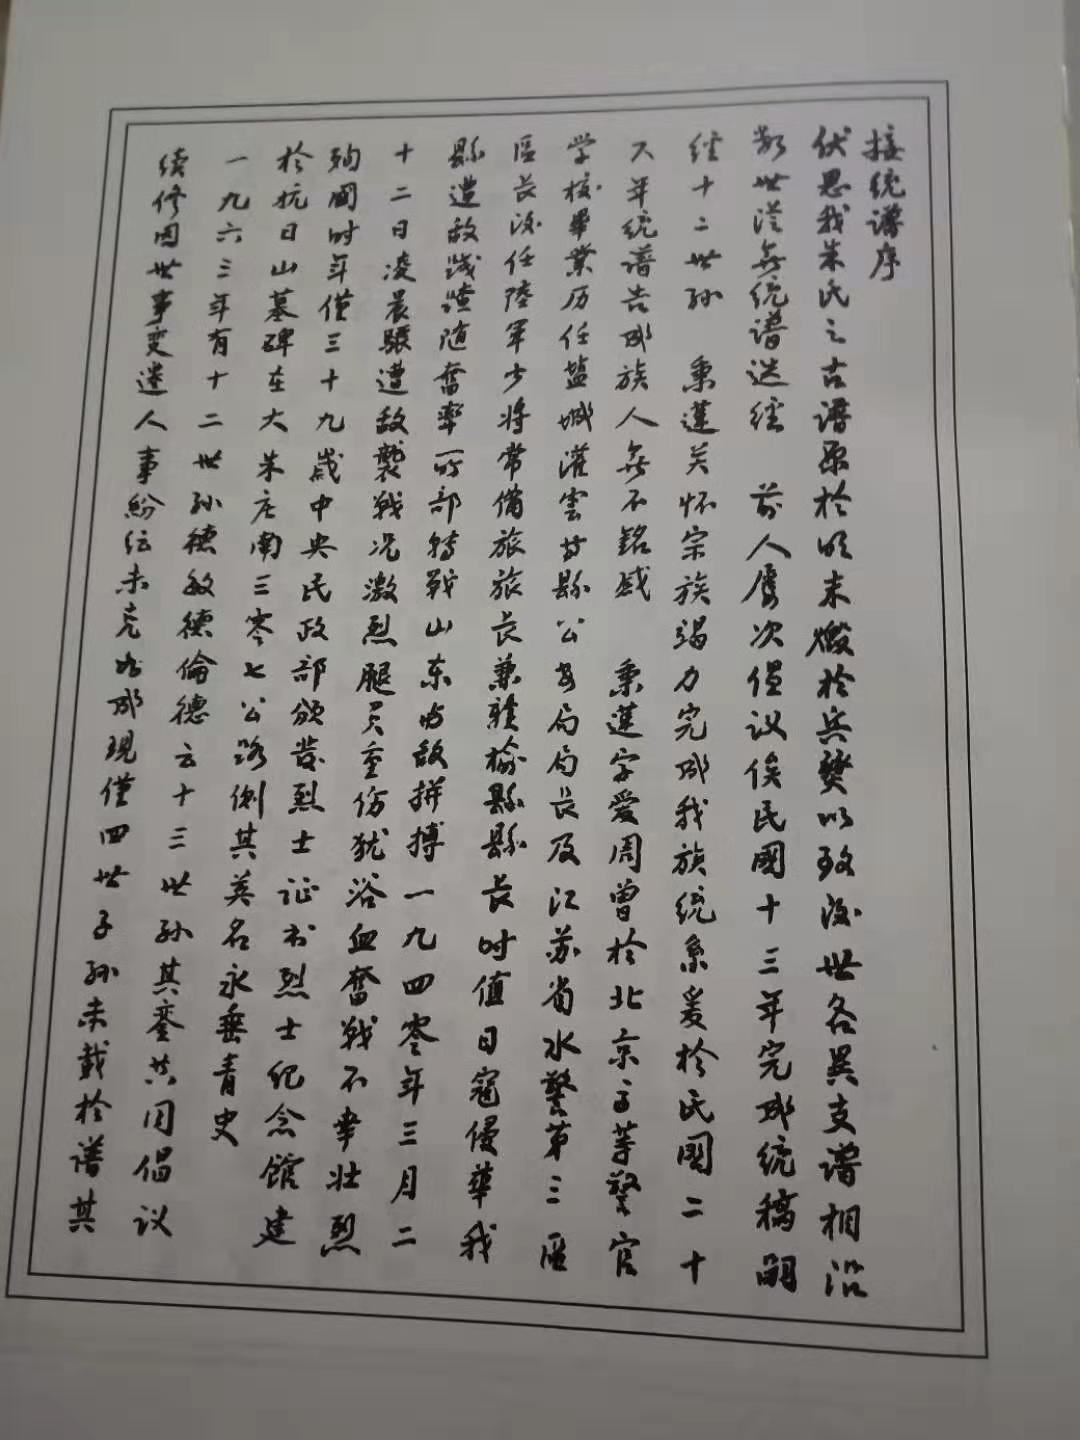 接统谱序
伏思我朱氏之古谱原於明末燬於兵燹以致後世各異支谱相沿
数世从無统谱迭经 前人屡次倡议俟民國十三年完成统稿嗣
经十二世孙 秉莲关怀宗族竭力完成我族统系爰於民國二十
八年统谱告成族人無不銘感 秉莲字爱周曾於北京高等警官
学校畢業历任盐城灌雲等縣公安局局长及江苏省水警第三區
區长後任陸軍少将常備旅旅长兼赣榆縣縣长时值日寇侵華我
縣遭敌践踏随奮率所部转戰山东与敌拼搏一九四零年三月二
十二日凌晨驟遭敌襲戰况激烈腿负重伤犹浴血奮戰不幸壮烈
殉國时年僅三十九歲中央民政部颁發烈士证书烈士纪念館建
於抗日山墓碑在大朱庄南三零七公路侧其英名永垂青史
一九六三年有十二世孙德敏德倫德云十三世孙其銮共同倡议
续修因世事变迷人事紛纭未克始成現僅四世子孙未載於谱其